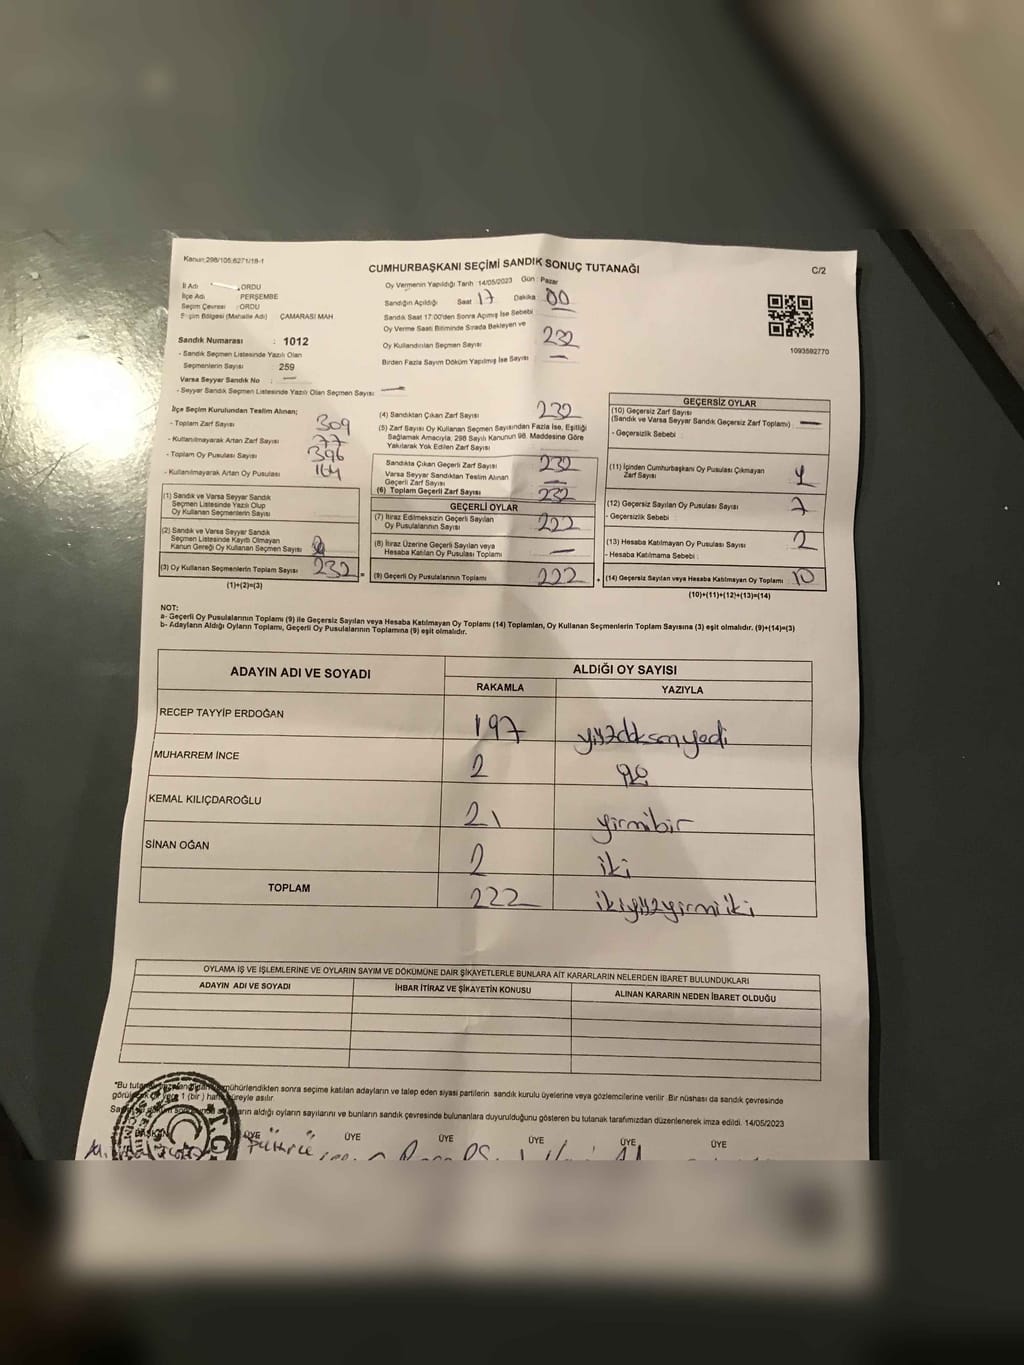 Kanun:298/105;6271/18-1
CUMHURBAŞKANI SEÇİMİ SANDIK SONUÇ TUTANAĞI
C/2
İl Adı : ORDU
İlçe Adı : PERŞEMBE
Seçim Çevresi : ORDU
Seçim Bölgesi (Mahalle Adı) : ÇAMARASI MAH
Sandık Numarası : 1012
- Sandık Seçmen Listesinde Yazılı Olan
Seçmenlerin Sayısı : 259
Varsa Seyyar Sandık No : —
- Seyyar Sandık Seçmen Listesinde Yazılı Olan Seçmen Sayısı : —
Oy Vermenin Yapıldığı Tarih : 14/05/2023 Gün : Pazar
Sandığın Açıldığı Saat 17 Dakika 00
Sandık Saat 17:00'den Sonra Açımış İse Sebebi
Oy Verme Saati Bitiminde Sırada Bekleyen ve
Oy Kullandırılan Seçmen Sayısı 232
Birden Fazla Sayım Döküm Yapılmış İse Sayısı —
1093592770
İlçe Seçim Kurulundan Teslim Alınan;
- Toplam Zarf Sayısı 309
- Kullanılmayarak Artan Zarf Sayısı 77
- Toplam Oy Pusulası Sayısı 396
- Kullanılmayarak Artan Oy Pusulası 164
(1) Sandık ve Varsa Seyyar Sandık
Seçmen Listesinde Yazılı Olup
Oy Kullanan Seçmenlerin Sayısı
(2) Sandık ve Varsa Seyyar Sandık
Seçmen Listesinde Kayıtlı Olmayan
Kanun Gereği Oy Kullanan Seçmen Sayısı
(3) Oy Kullanan Seçmenlerin Toplam Sayısı 232 =
(1)+(2)=(3)
(4) Sandıktan Çıkan Zarf Sayısı 232
(5) Zarf Sayısı Oy Kullanan Seçmen Sayısından Fazla İse, Eşitliği
Sağlamak Amacıyla, 298 Sayılı Kanunun 98. Maddesine Göre
Yakılarak Yok Edilen Zarf Sayısı
Sandıkta Çıkan Geçerli Zarf Sayısı 232
Varsa Seyyar Sandıktan Teslim Alınan
Geçerli Zarf Sayısı —
(6) Toplam Geçerli Zarf Sayısı 232
GEÇERLİ OYLAR
(7) İtiraz Edilmeksizin Geçerli Sayılan
Oy Pusulalarının Sayısı 222
(8) İtiraz Üzerine Geçerli Sayılan veya
Hesaba Katılan Oy Pusulası Toplamı —
(9) Geçerli Oy Pusulalarının Toplamı 222 +
GEÇERSİZ OYLAR
(10) Geçersiz Zarf Sayısı
(Sandık ve Varsa Seyyar Sandık Geçersiz Zarf Toplamı) —
- Geçersizlik Sebebi :
(11) İçinden Cumhurbaşkanı Oy Pusulası Çıkmayan
Zarf Sayısı 1
(12) Geçersiz Sayılan Oy Pusulası Sayısı 7
- Geçersizlik Sebebi :
(13) Hesaba Katılmayan Oy Pusulası Sayısı 2
- Hesaba Katılmama Sebebi :
(14) Geçersiz Sayılan veya Hesaba Katılmayan Oy Toplamı 10
(10)+(11)+(12)+(13)=(14)
NOT:
a- Geçerli Oy Pusulalarının Toplamı (9) ile Geçersiz Sayılan veya Hesaba Katılmayan Oy Toplamı (14) Toplamları, Oy Kullanan Seçmenlerin Toplam Sayısına (3) eşit olmalıdır. (9)+(14)=(3)
b- Adayların Aldığı Oyların Toplamı, Geçerli Oy Pusulalarının Toplamına (9) eşit olmalıdır.
ADAYIN ADI VE SOYADI ALDIĞI OY SAYISI
RAKAMLA YAZIYLA
RECEP TAYYİP ERDOĞAN 197 yüzdoksanyedi
MUHARREM İNCE 2
KEMAL KILIÇDAROĞLU 21 yirmibir
SİNAN OĞAN 2 iki
TOPLAM 222 ikiyüzyirmiiki
OYLAMA İŞ VE İŞLEMLERİNE VE OYLARIN SAYIM VE DÖKÜMÜNE DAİR ŞİKAYETLERLE BUNLARA AİT KARARLARIN NELERDEN İBARET BULUNDUKLARI
ADAYIN ADI VE SOYADI İHBAR İTİRAZ VE ŞİKAYETİN KONUSU ALINAN KARARIN NEDEN İBARET OLDUĞU
*Bu mühürlendikten sonra seçime katılan adayların ve talep eden siyasi partilerin sandık kurulu üyelerine veya gözlemcilerine verilir. Bir nüshası da sandık çevresinde
1 (bir) süreyle asılır.
aldığı oyların sayılarını ve bunların sandık çevresinde bulunanlara duyurulduğunu gösteren bu tutanak tarafımızdan düzenlenerek imza edildi. 14/05/2023
ÜYE ÜYE ÜYE ÜYE ÜYE ÜYE
T.C.